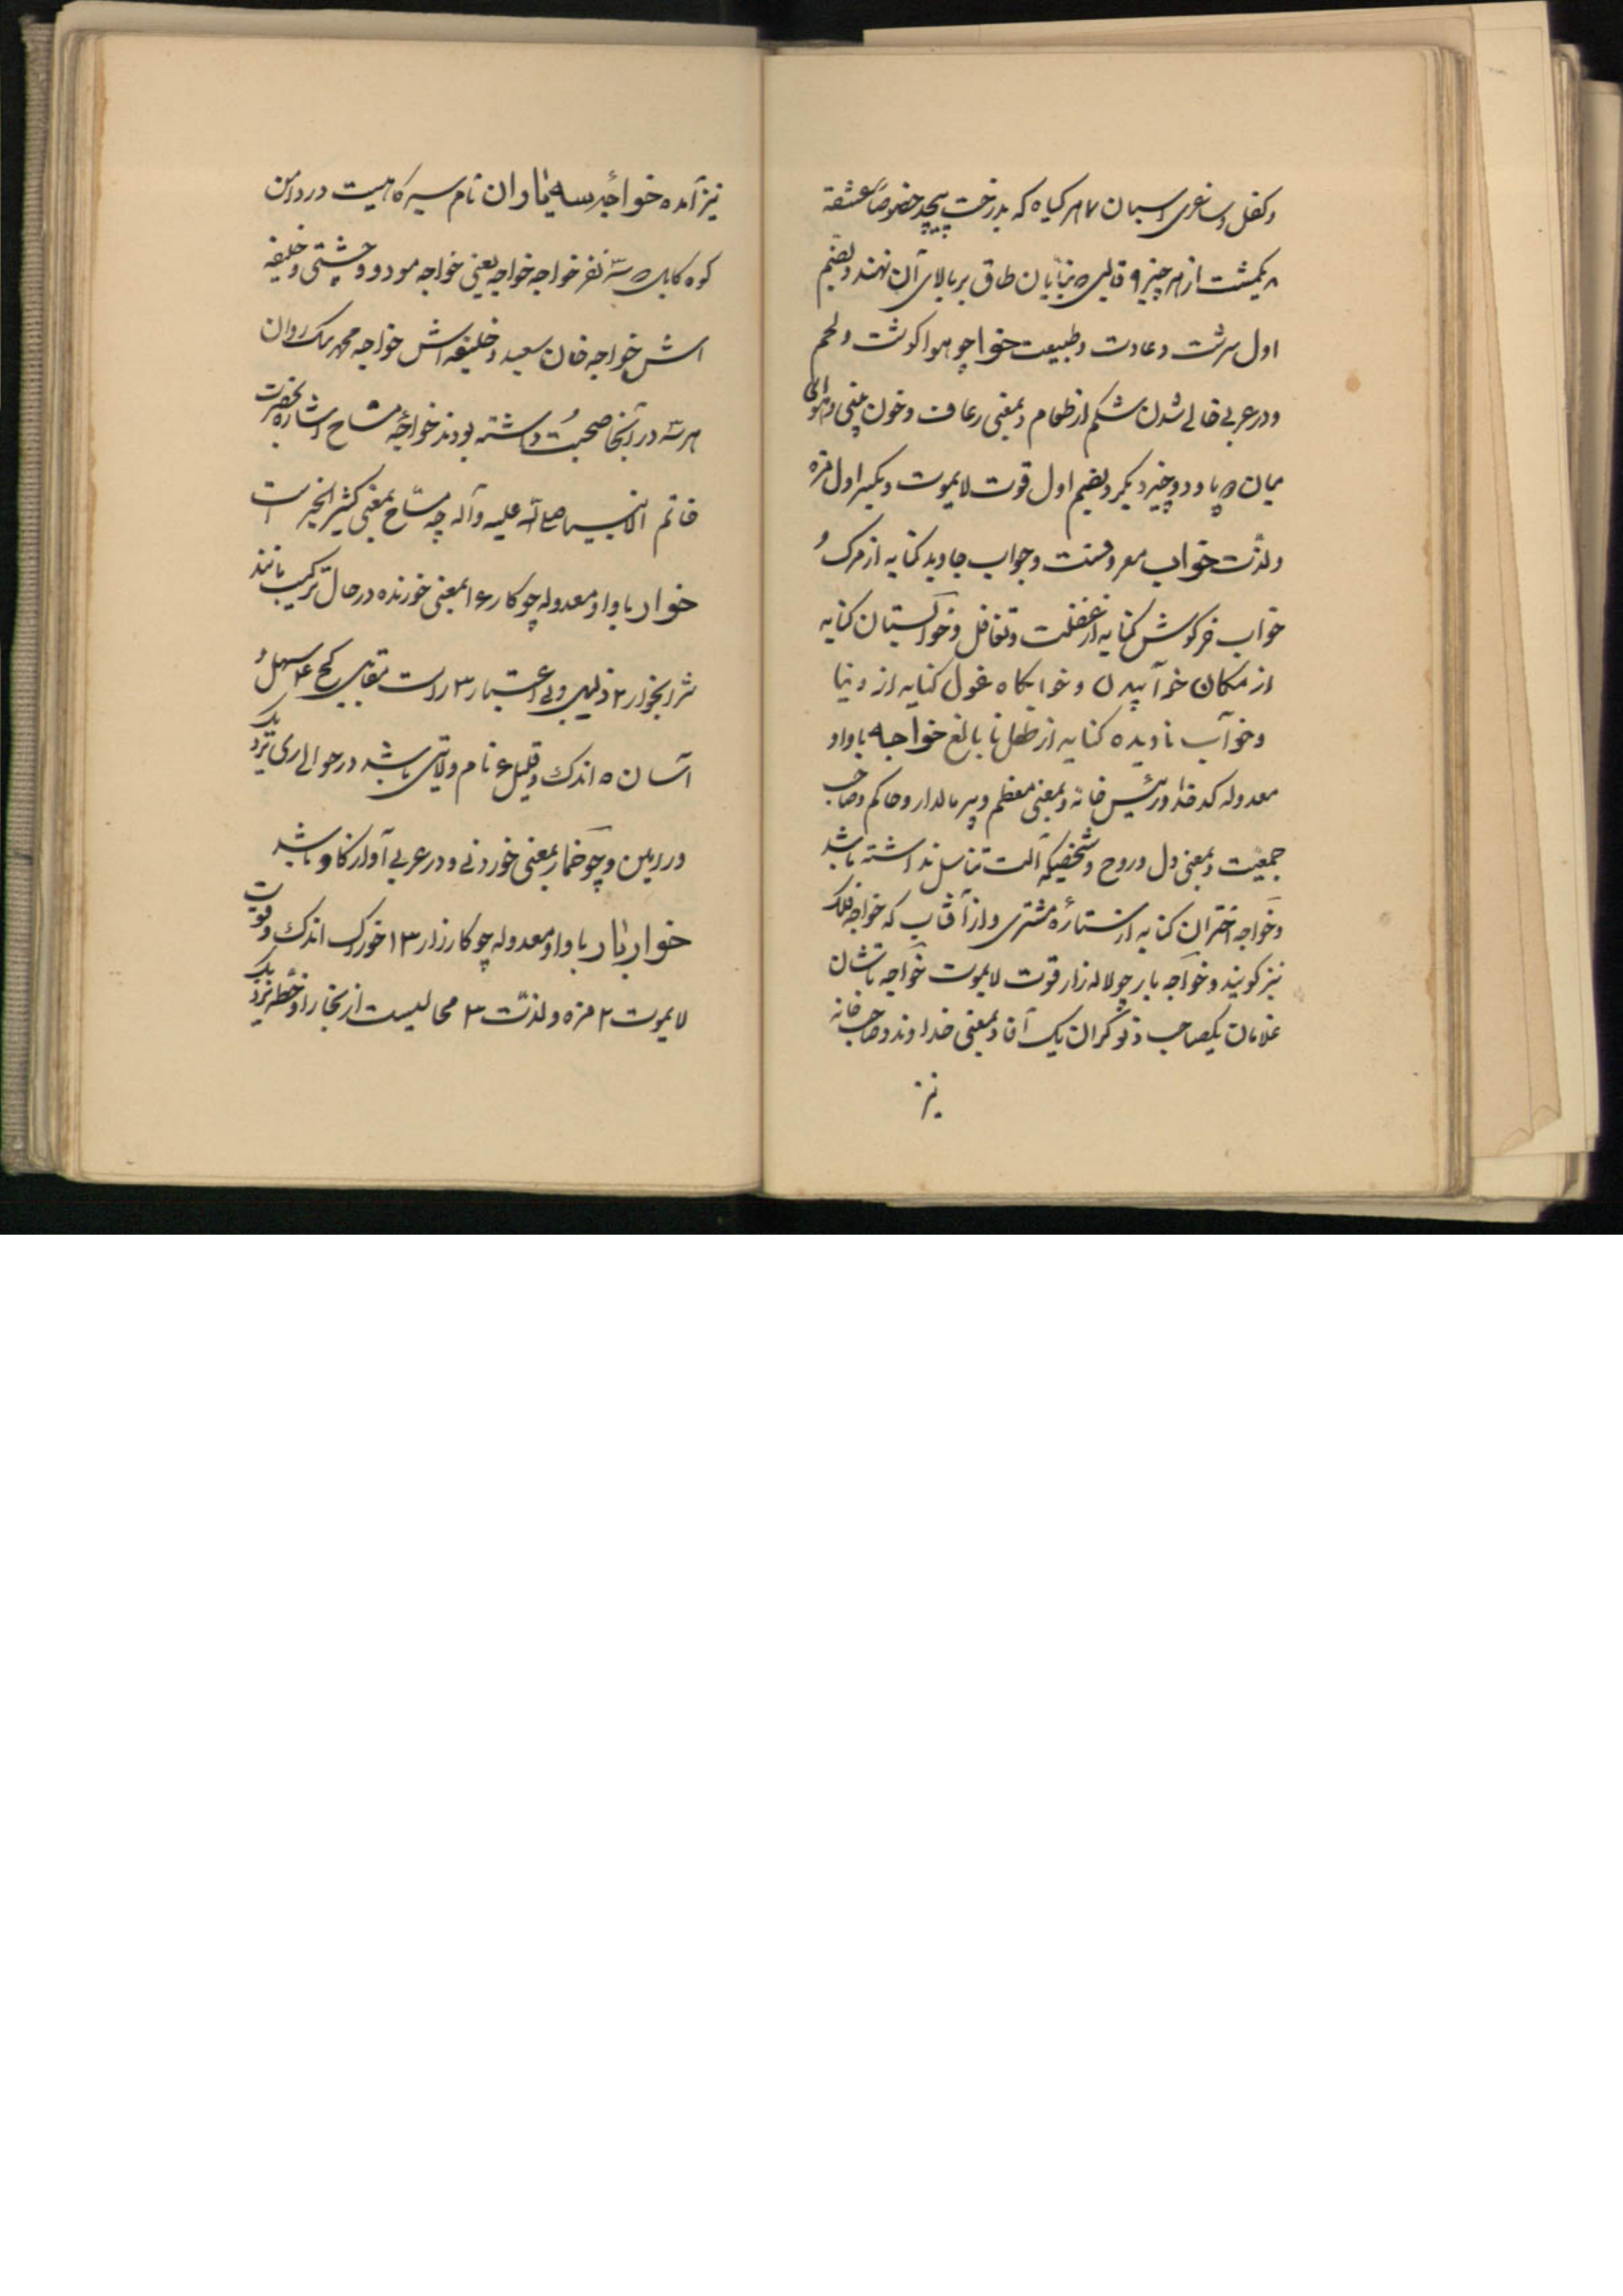 وکفل و ساغری اسپان ۷ هر کیاه که بدرخت پیچد خصوصاً عشقه
۸ یکمشت از هر چیز ۹ قالبی که بنایان طاق بر بالای آن نهند و بضم
اول سرشت و عادت و طبیعت خوا چو هوا کوشت و لحم
و در عربی خالی شدن شکم از طعام و بمعنی رعاف و خون بینی
میان دو پا و دو چیز دیکر و بضم اول قوت لایموت و بکسر اول مزه
و لذت خواب معروفست و خواب جاوید کنایه از مرک و
خواب خرکوش کنایه از غفلت و تغافل و خوابستان کنایه
از مکان خوابیدن و خوابکاه غول کنایه از دنیا
و خواب نادیده کنایه از طفل نابالغ خواجه باواو
معدوله کدخدا و رئیس خانه و بمعنی معظم و پیر مالدار و حاکم و صاحب
جمعیت و بمعنی دل و روح و شخصیکه آلت تناسل نداشته باشد
و خواجه اختران کنایه از ستارهٔ مشتری و از آفتاب که خواجه فلک
نیز کویند و خواجه بار چو لاله زار قوت لایموت خواجه تاشان
غلامان یکصاحب و نوکران یک آقا و بمعنی خداوند و صاحب خانه
نیز
نیز آمده خواجه سه یاران نام سیرکاهیست در دامن
کوه کابل که سه نفر خواجه یعنی خواجه مودود چشتی و خلیفه
اش خواجه خان سعید و خلیفه اش خواجه محمد ریک روان
هر سه در آنجا صحبت داشته بودند خواجهٔ مساح اشاره بحضرت
خاتم الانبیا صلی الله علیه و آله چه مساح بمعنی کثیر الخیر است
خوار باواو معدوله چو کار ۱ بمعنی خورنده در حال ترکیب مانند
شرابخوار ۲ ذلیل و بی اعتبار ۳ راست مقابل کج ۴ سهل و
آسان ۵ اندک و قلیل ۶ نام ولایتی باشد در حوالی ری نزدیک
ورامین و چو خمار بمعنی خوردنی و در عربی آواز کاو باشد
خواربار باواو معدوله چو کارزار ۱ خوراک اندک و قوت
لایموت ۲ مزه و لذت ۳ محالیست از بخارا و خطه نزدیک